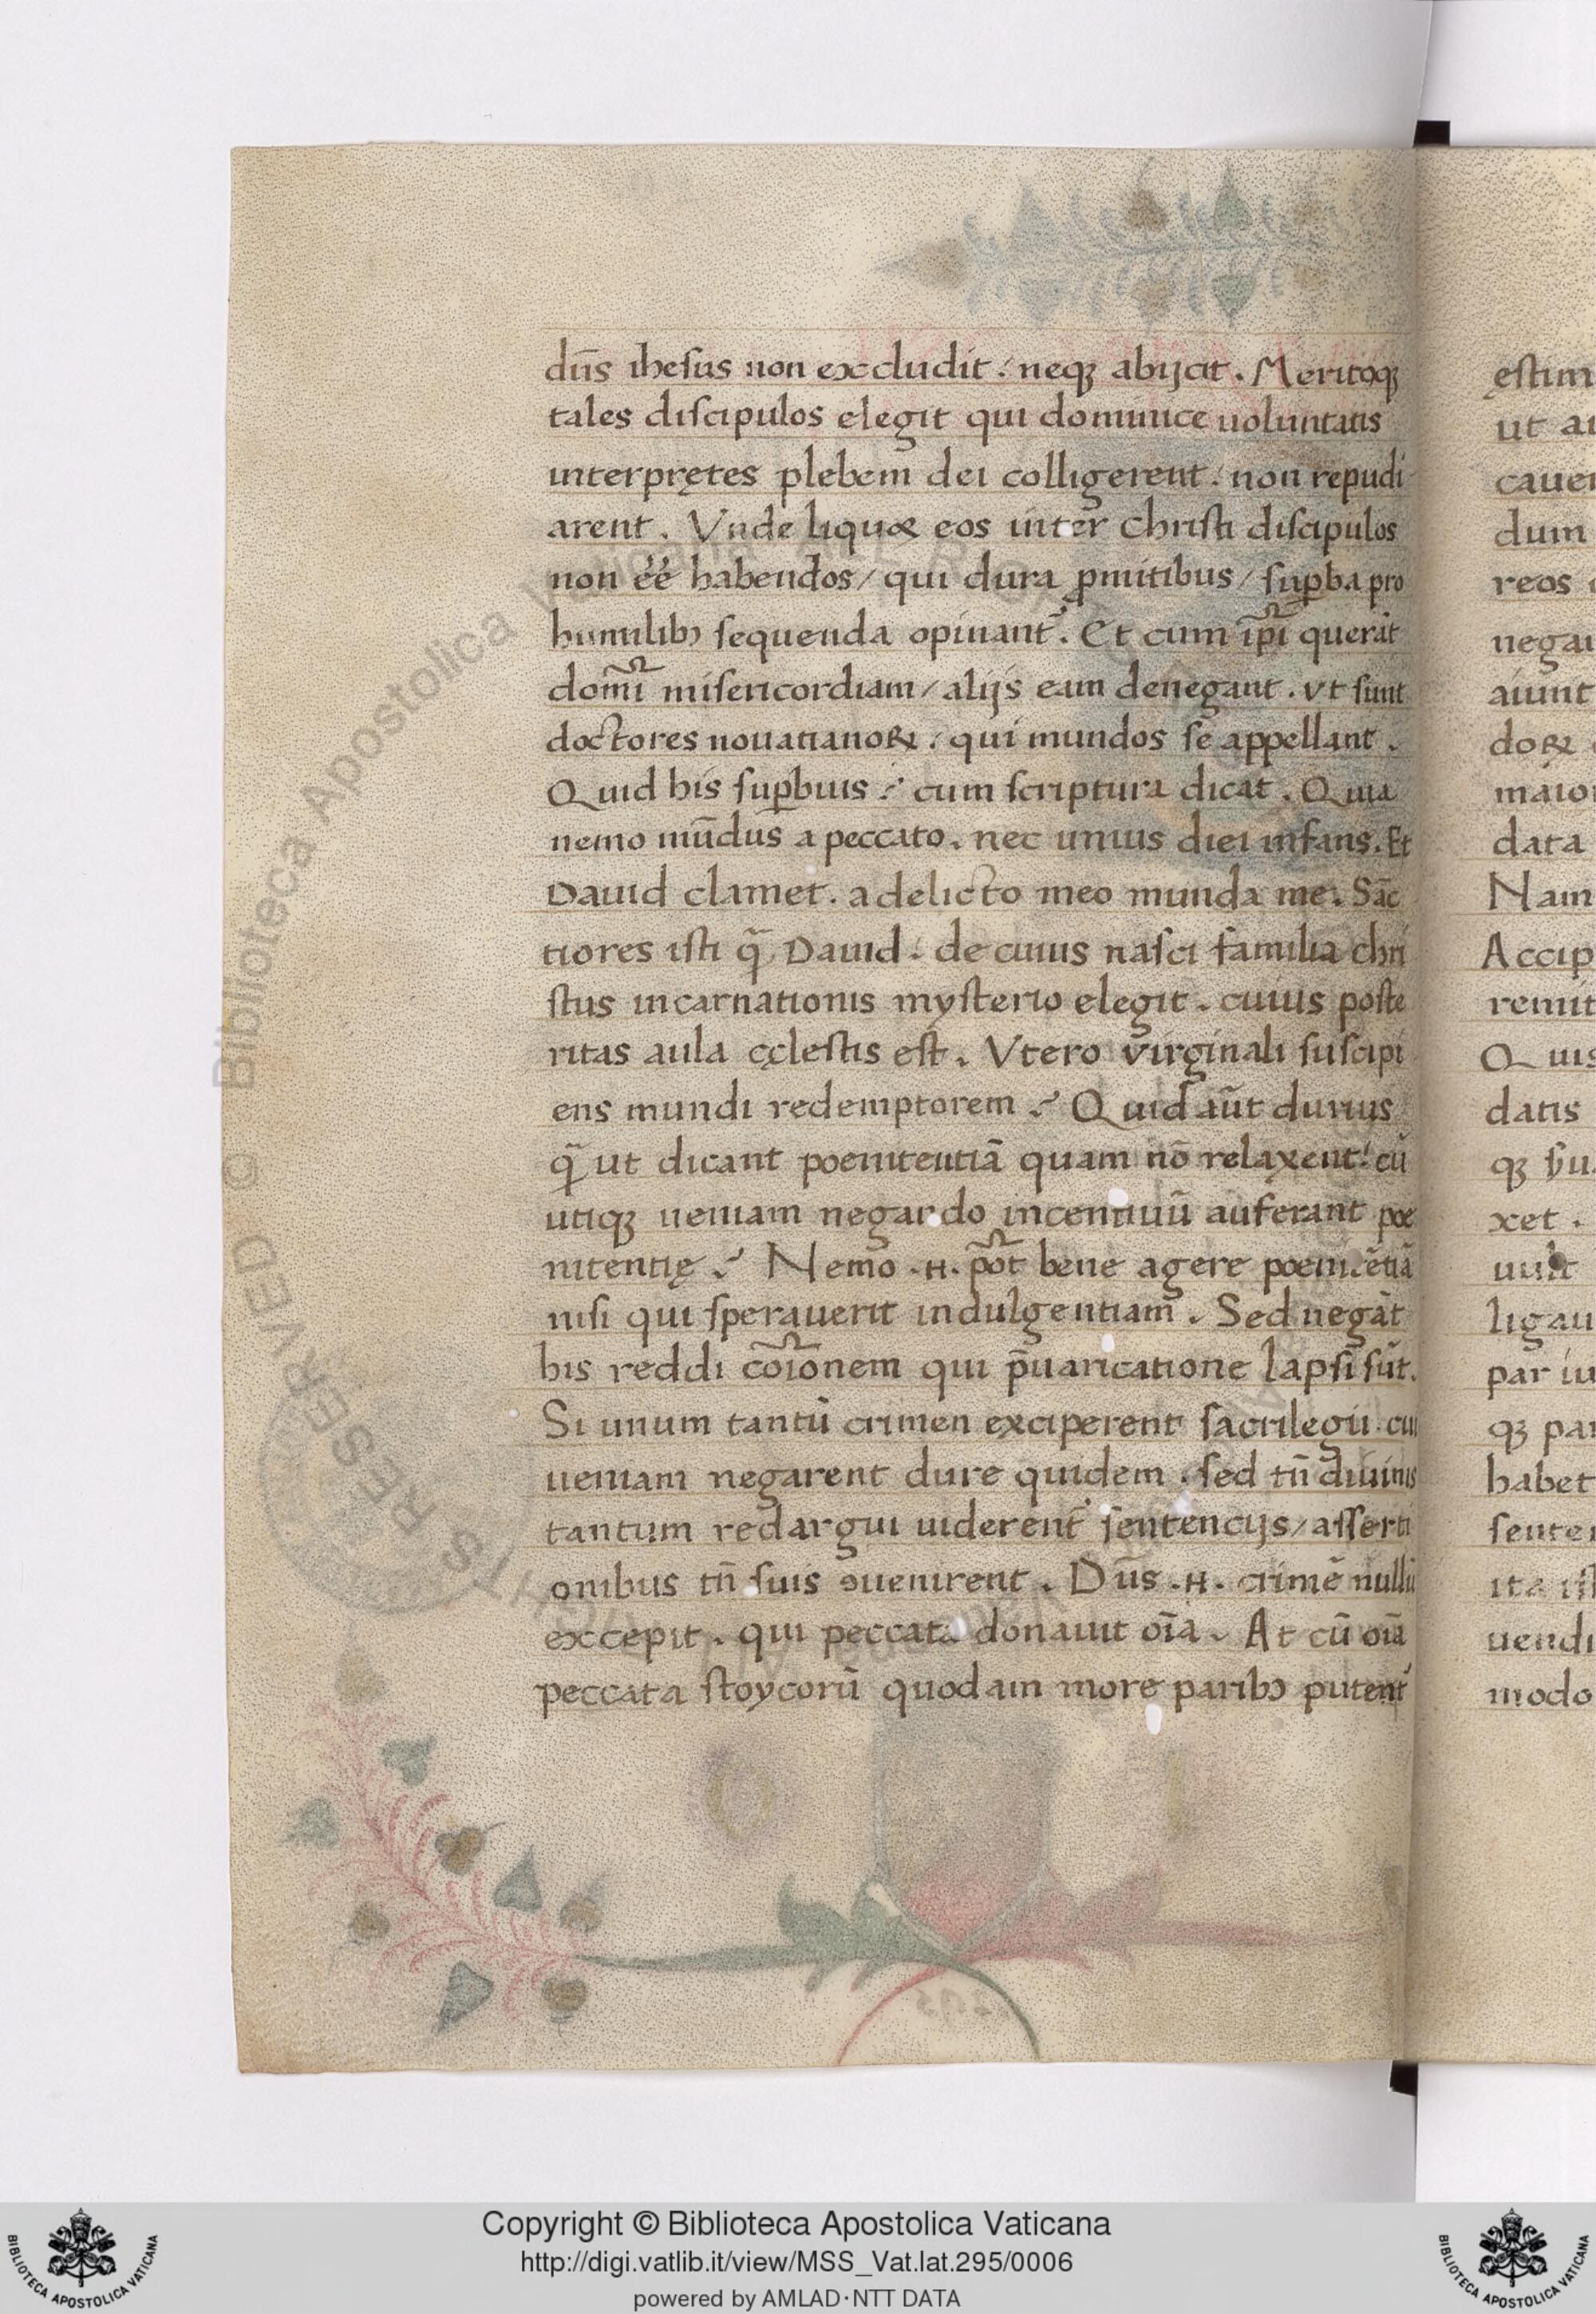 dn̄s ihesus non excludit : neqꝫ abijcit . Meritoqꝫ
tales discipulos elegit qui dominice uoluntatis
interpr̨etes plebem dei colligerent : non repudi
arent . Vnde liquꝫ eos inter christi discipulos
non ee͂ habendos / qui dura ꝓ mitibus / suꝑba pro
humilibꝰ sequenda opinant᷑ . Et cum ip̄i querāt
domī misericordiam / alijs eam denegant . vt sunt
doctores nouatianoꝝ : qui mundos se appellant .
Quid his suꝑbius ? cum scriptura dicat . Quia
nemo mūdus a peccato . nec unius diei infans . Et
Dauid clamet . a delicto meo munda me . Sāc
tiores isti q̄ꝫ Dauid : de cuius nasci familia chri
stus incarnationis mysterio elegit . cuius poste
ritas aula cęlestis est . Vtero virginali suscipi
ens mundi redemptorem ? Quid aūt durius
q̄ꝫ ut dicant poenitentiā quam nō relaxent : cū
utiqꝫ ueniam negando incentiuū auferant poe
nitentię ? Nemo .H. pōt bene agere poenitētiā
nisi qui sperauerit indulgentiam . Sed negāt
his reddi cōionem qui p̄uaricatione lapsi sūt .
Si unum tantū crimen exciperent sacrilegii cui
ueniam negarent dure quidem . sed tn̄ diuinis
tantum redargui uiderent᷑ sentencijs / asserti
onibus tn̄ suis ꝯuenirent . Dn̄s .H. crimē nullū
excepit . qui peccata donauit oīa . At cū oīa
peccata stoycorū quodam more paribꝰ putent᷑
estim
ut
caue
dum
reos
negan
aiunt
doꝝ
maio
data
Nam
Accip
remit
Quis
datis
qꝫ
xet .
ligau
par iu
qꝫ par
habet
senten
uendi
modo
Biblioteca Apostolica Vaticana
Copyright © Biblioteca Apostolica Vaticana
http://digi.vatlib.it/view/MSS_Vat.lat.295/0006
powered by AMLAD·NTT DATA
BIBLIOTECA APOSTOLICA VATICANA
BIBLIOTECA APOSTOLICA VATICANA